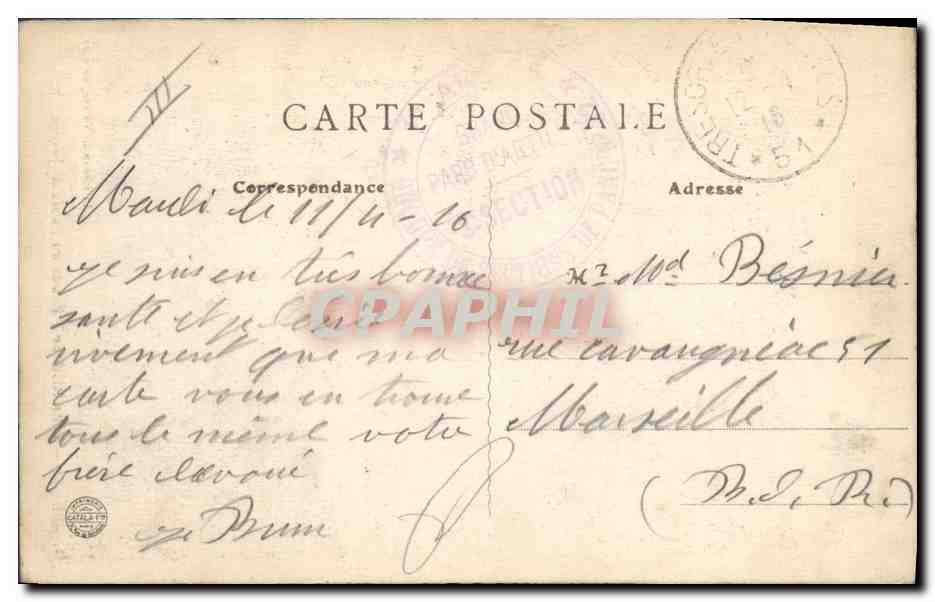 CARTE POSTALE
TRESOR ET POSTES
12 16
* 51 *
PARC D'ARTIE
SECTION
Correspondance
Adresse
Mardi le 11/4-16
je suis en très bonne
santé et je desire
vivement que ma
carte vous en trouve
tous le même votre
frère dévoué
Je Brun
Mr Md Bésnier
rue cavaugniac 51
Marseille
(B. d. R.)
CPAPHIL
IMPRIMERIE
CATALA FRES